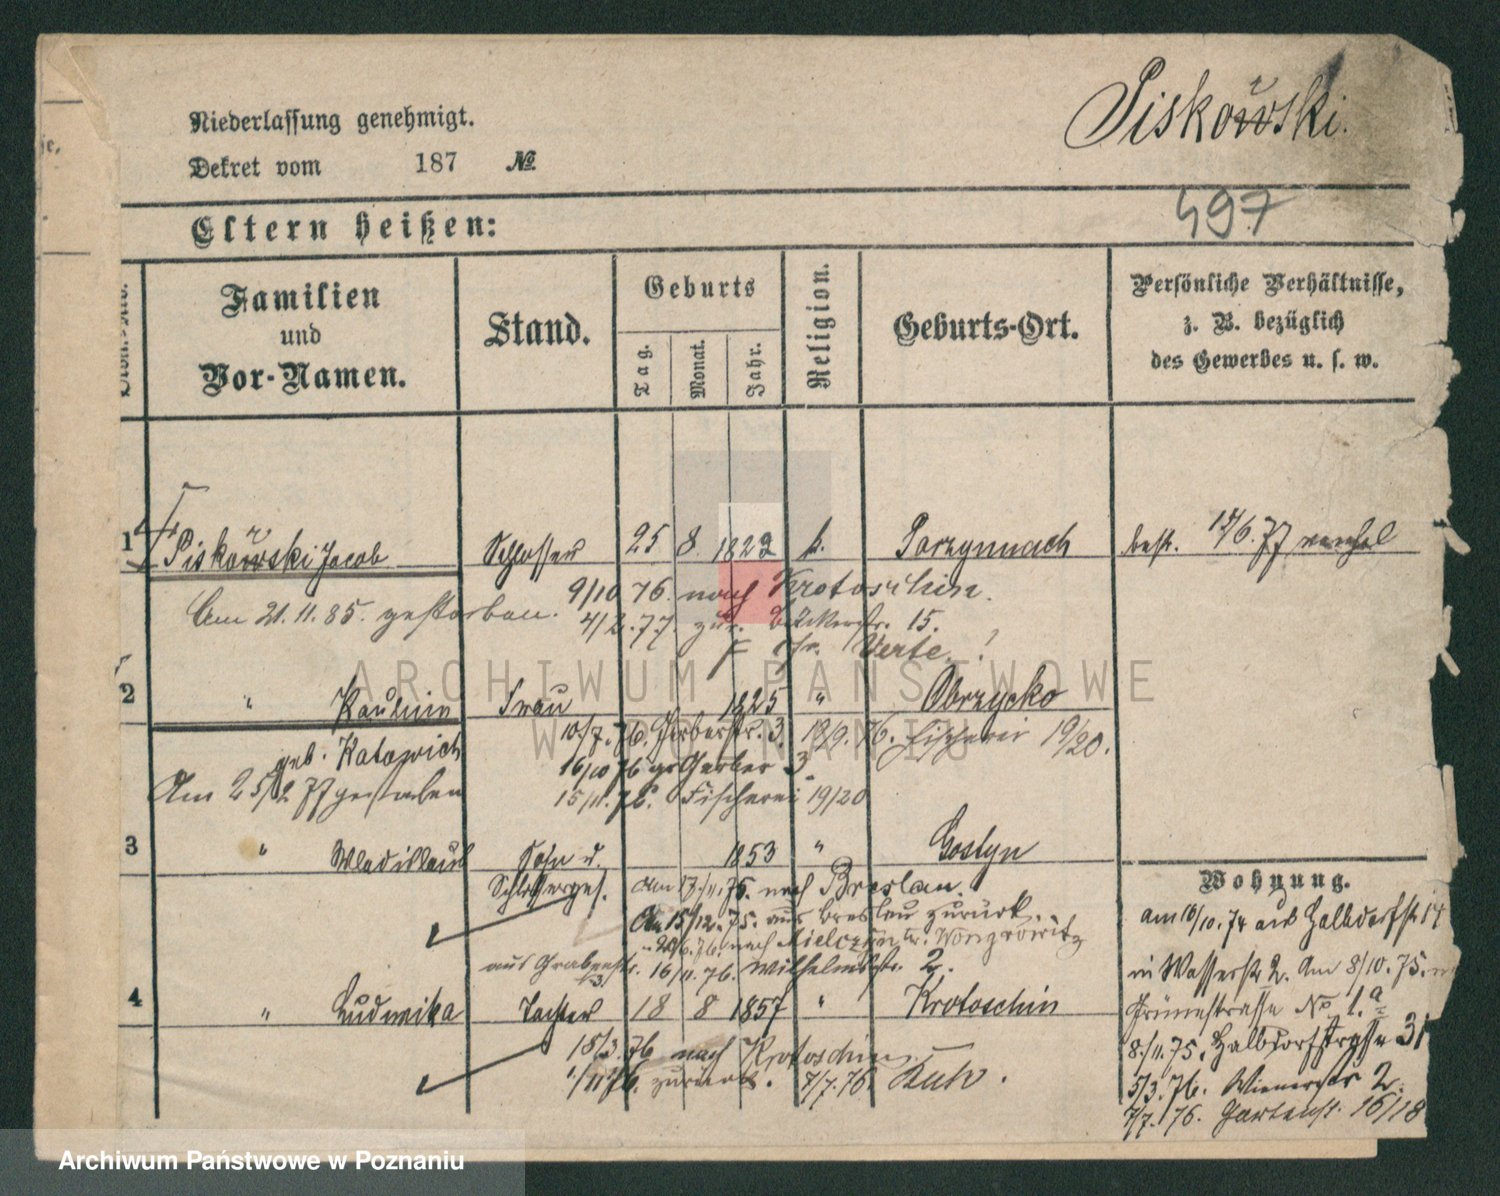 Piskowski.
Niederlassung genehmigt.
Dekret vom 187 No
497
Eltern heißen:
Familien und Vor-Namen.
Stand.
Geburts
Tag.
Monat.
Jahr.
Religion.
Geburts-Ort.
Persönliche Verhältnisse,
z. B. bezüglich
des Gewerbes u. s. w.
1 Piskowski Jacob Schlosser 25 8 1822 k. best. 14/6.77
9/10 76. nach Krotoschin.
Am 21.11.85. gestorben.
4/2.77. zur. 15.
ARCHIWUM PAŃSTWOWE
W POZNANIU
2 " Frau 1825 " Obrzycko
10/7.76. Gerberstr. 3. 19/9.76. Fischerei 19/20.
geb. Katowich
16/10 76 gr Gerber 3.
Am 25/2 77 gestorben
15/11.76. Fischerei 19/20
3 " Wladislaus Sohn u. 1853 " Gostyn
Schlosserges. nach Breslau.
Wohnung.
Am 15/12.75. aus Breslau zurück.
am 10/10.74 aus Halbdorfstr 17
aus Grabenstr. 16/11.76. Wilhelmstr. 2.
in Wasserstr 2. Am 8/10.75.
4 " Ludwika Tochter 18 8 1857 " Krotoschin
Grünestrasse No 1.a
18/3.76 nach Krotoschin.
8./11.75. Halbdorfstrasse 31
1/11 76. zurück. 7/7.76.
5/3.76. Wienerstr 2.
7/7.76. Gartenst. 16/18
Archiwum Państwowe w Poznaniu